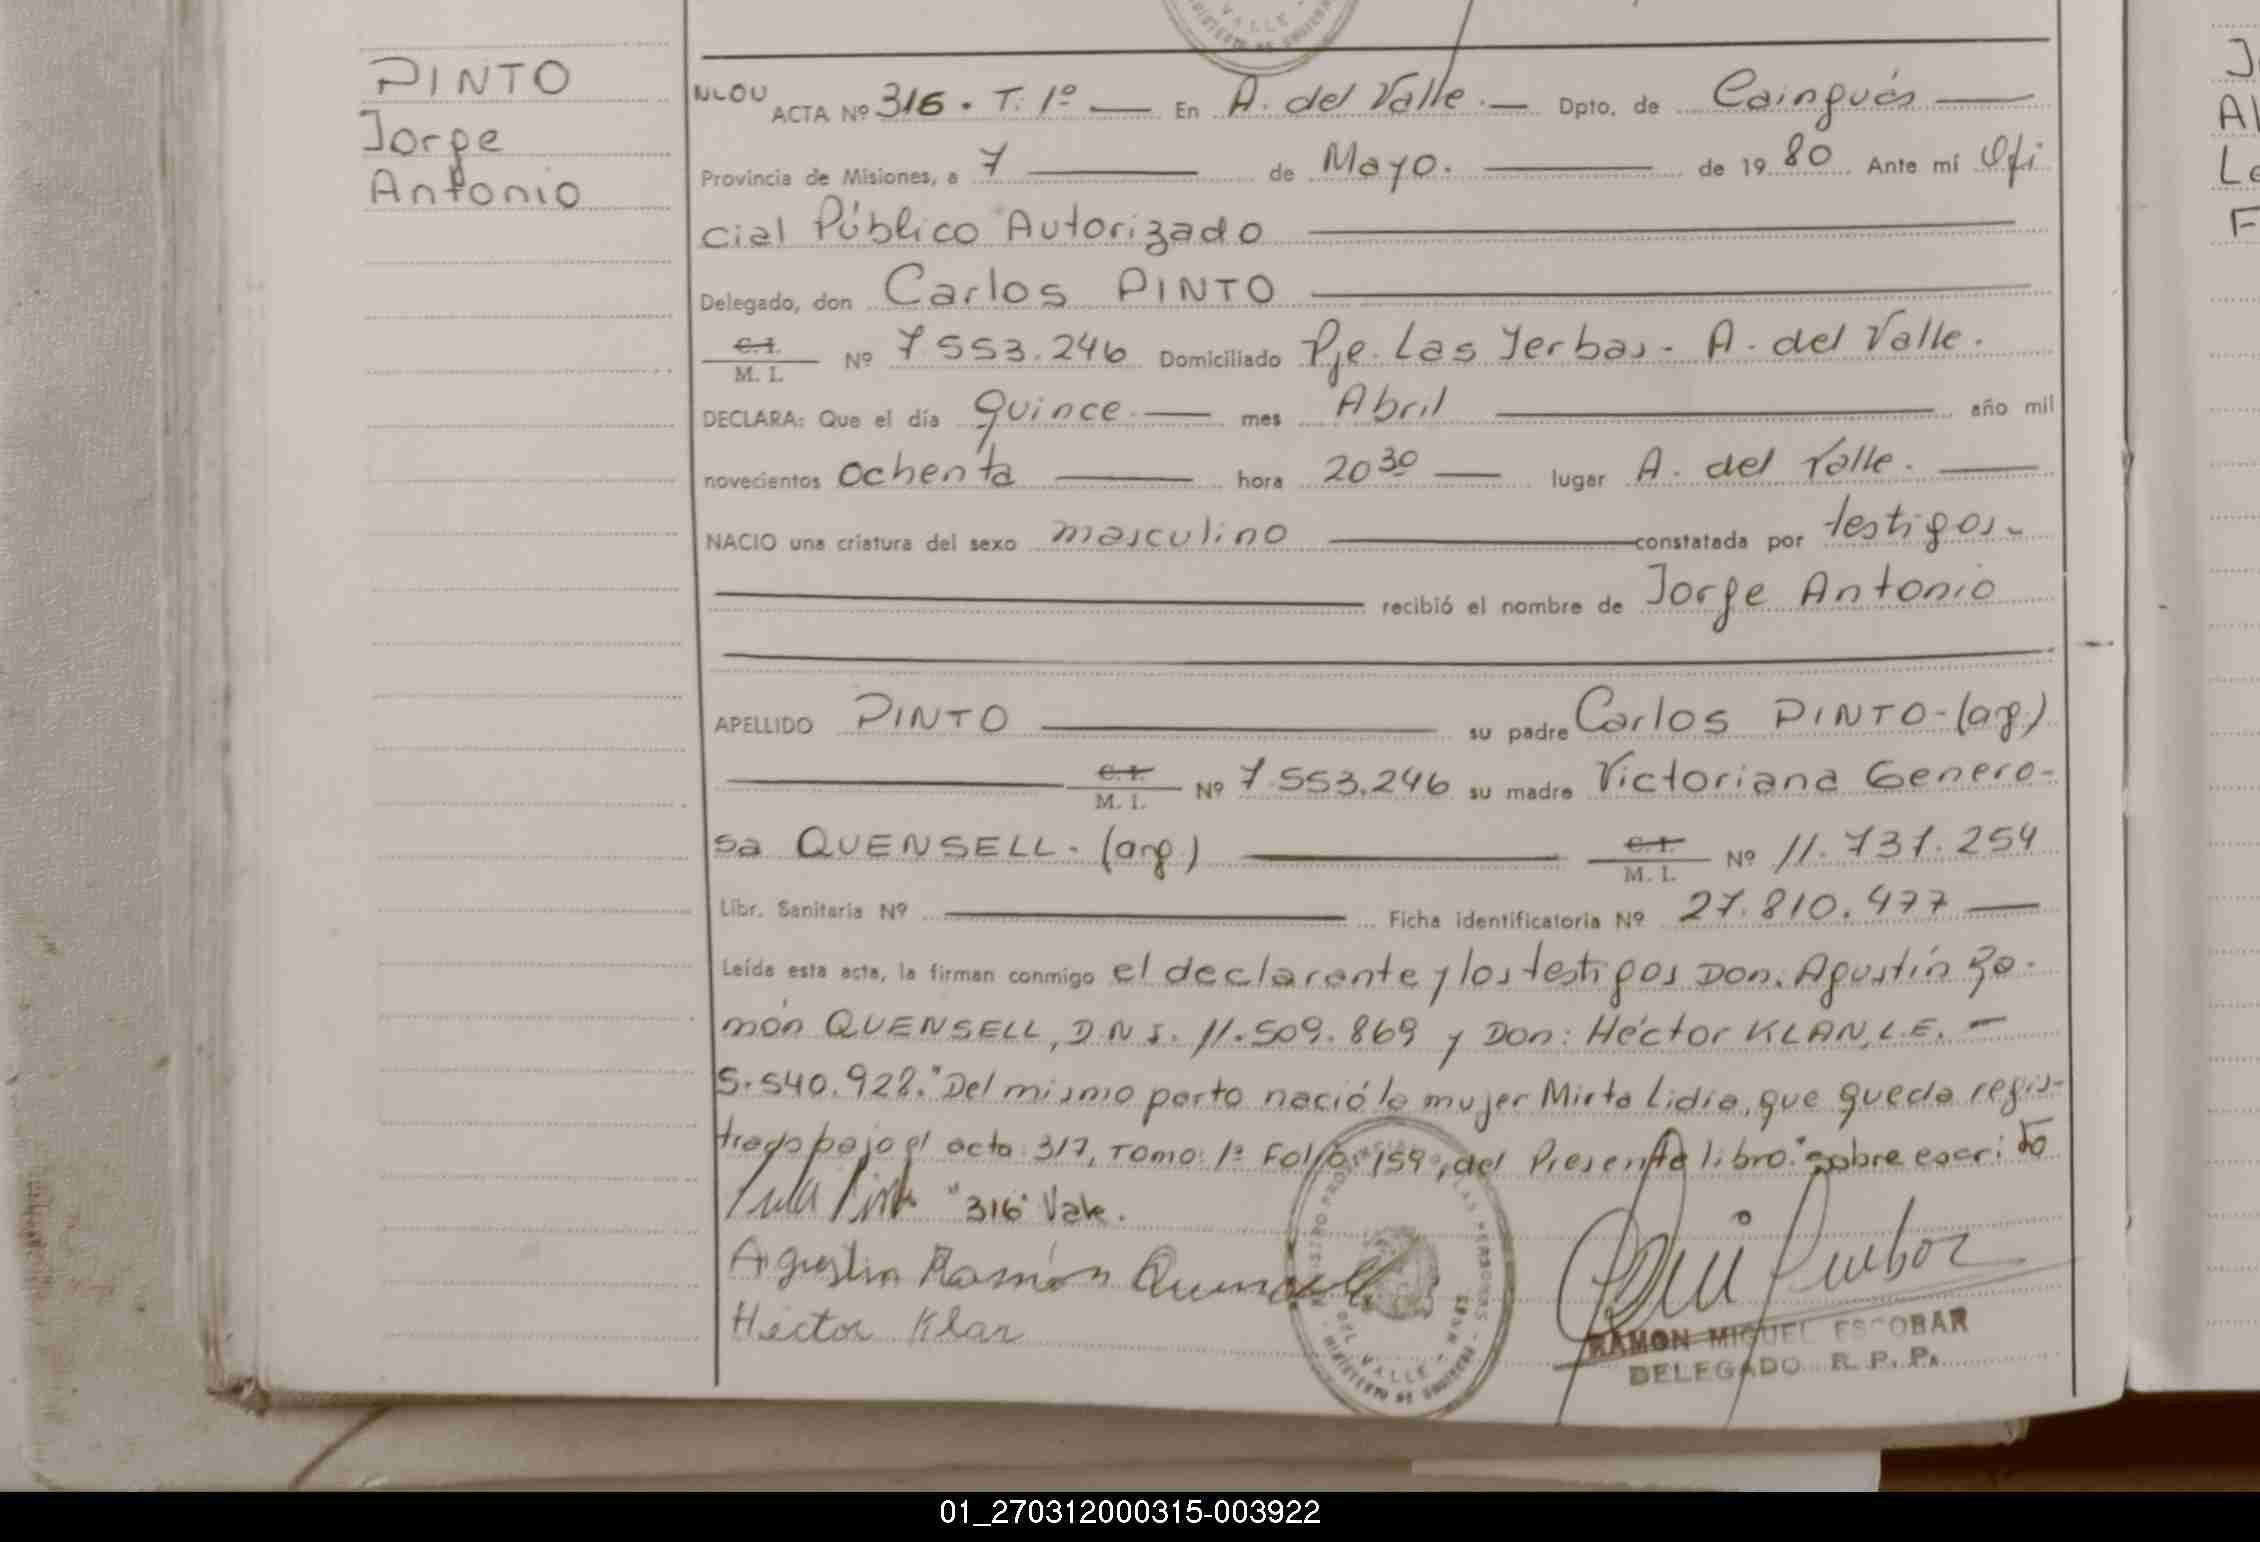 PINTO
Jorge
Antonio
NLOU ACTA Nº 316. T. 1º — En A. del Valle. — Dpto. de Cainguás —
Provincia de Misiones, a 7 — de Mayo. — de 1980 Ante mí Ofi
cial Público Autorizado —
Delegado, don Carlos PINTO —
C. I. / M. I. Nº 7553.246 Domiciliado Pje. Las Yerbas - A. del Valle.
DECLARA: Que el día quince — mes Abril — año mil
novecientos ochenta — hora 20 30 — lugar A. del Valle. —
NACIO una criatura del sexo masculino — constatada por testigos.-
— recibió el nombre de Jorge Antonio
APELLIDO PINTO — su padre Carlos PINTO-(arg.)
— C. I. / M. I. Nº 7.553.246 su madre Victoriana Genero-
sa QUENSELL. (arg.) — C. I. / M. I. Nº 11.737.254
Libr. Sanitaria Nº — Ficha identificatoria Nº 27.810.477 —
Leída esta acta, la firman conmigo el declarante y los testigos Don. Agustín Ra-
món QUENSELL, D.N.I. 11.509.869 y Don: Héctor KLAN, L.E. —
5.540.928. "Del mismo parto nació la mujer Mirta Lidia, que queda regis-
trada bajo el acta 317, Tomo: 1º Folio: 159, del Presente libro." sobre escrito
"316" Vale.
Agustin Ramón Quensell
Héctor Klan
REGISTRO PROVINCIAL DE LAS PERSONAS
DEL VALLE
MINISTERIO DE GOBIERNO
RAMON MIGUEL ESCOBAR
DELEGADO R. P. P.
01_270312000315-003922